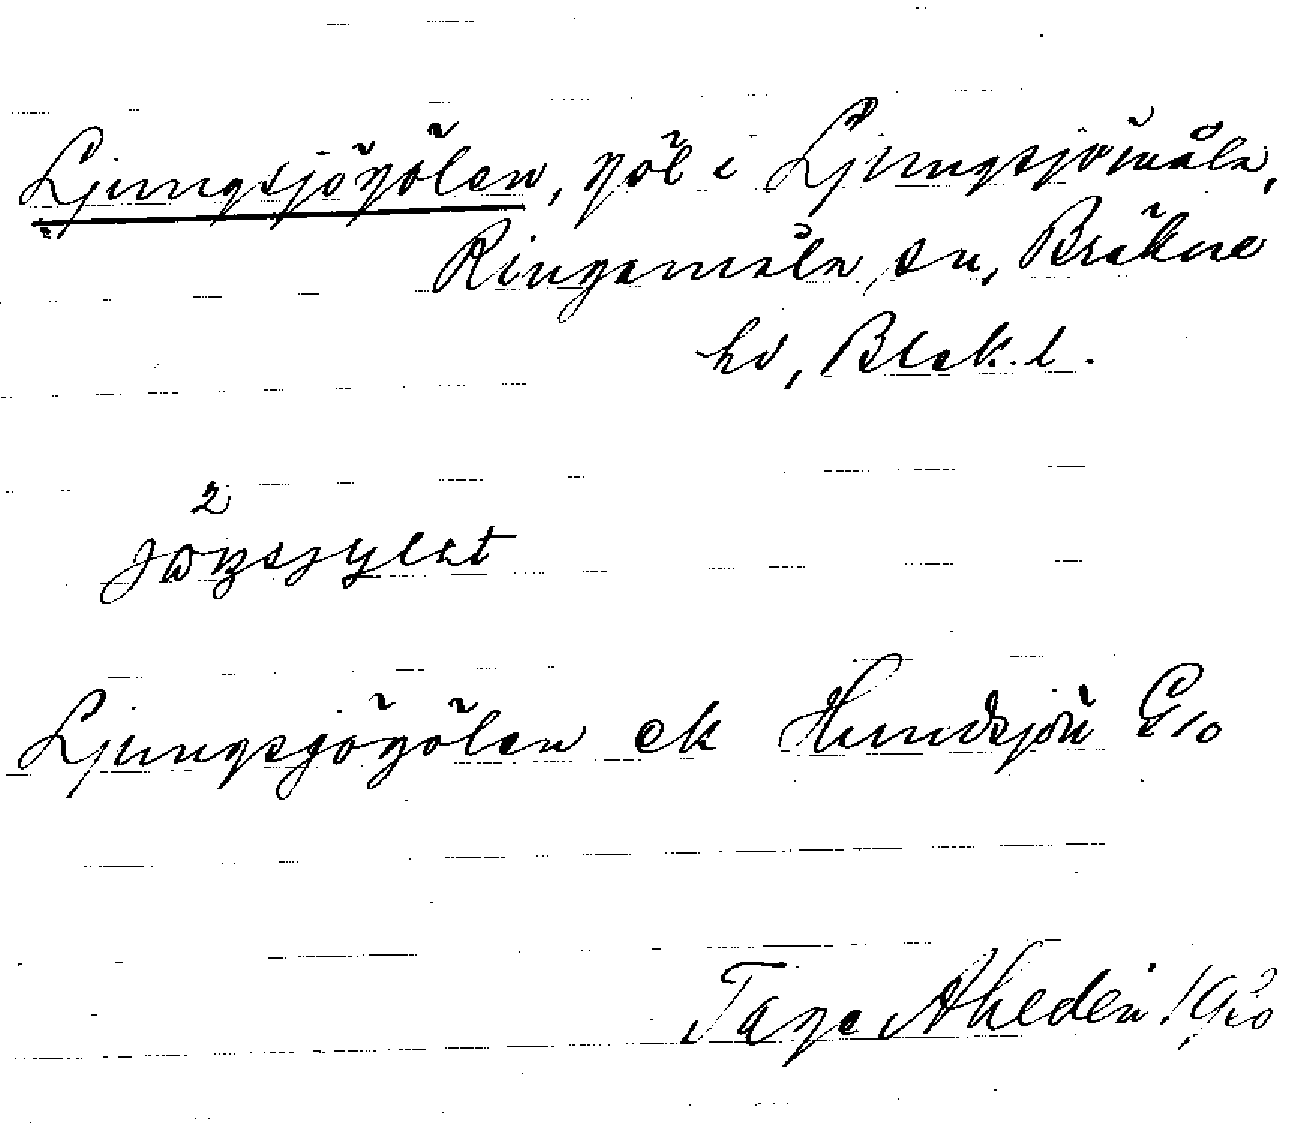 Ljungsjögölen, göl i Ljungsjömåla,
Ringamåla sn, Bräkne
hd, Blek.l.
2
Ljungsjögölen ek Hundsjön E/o
Tage Ahedén